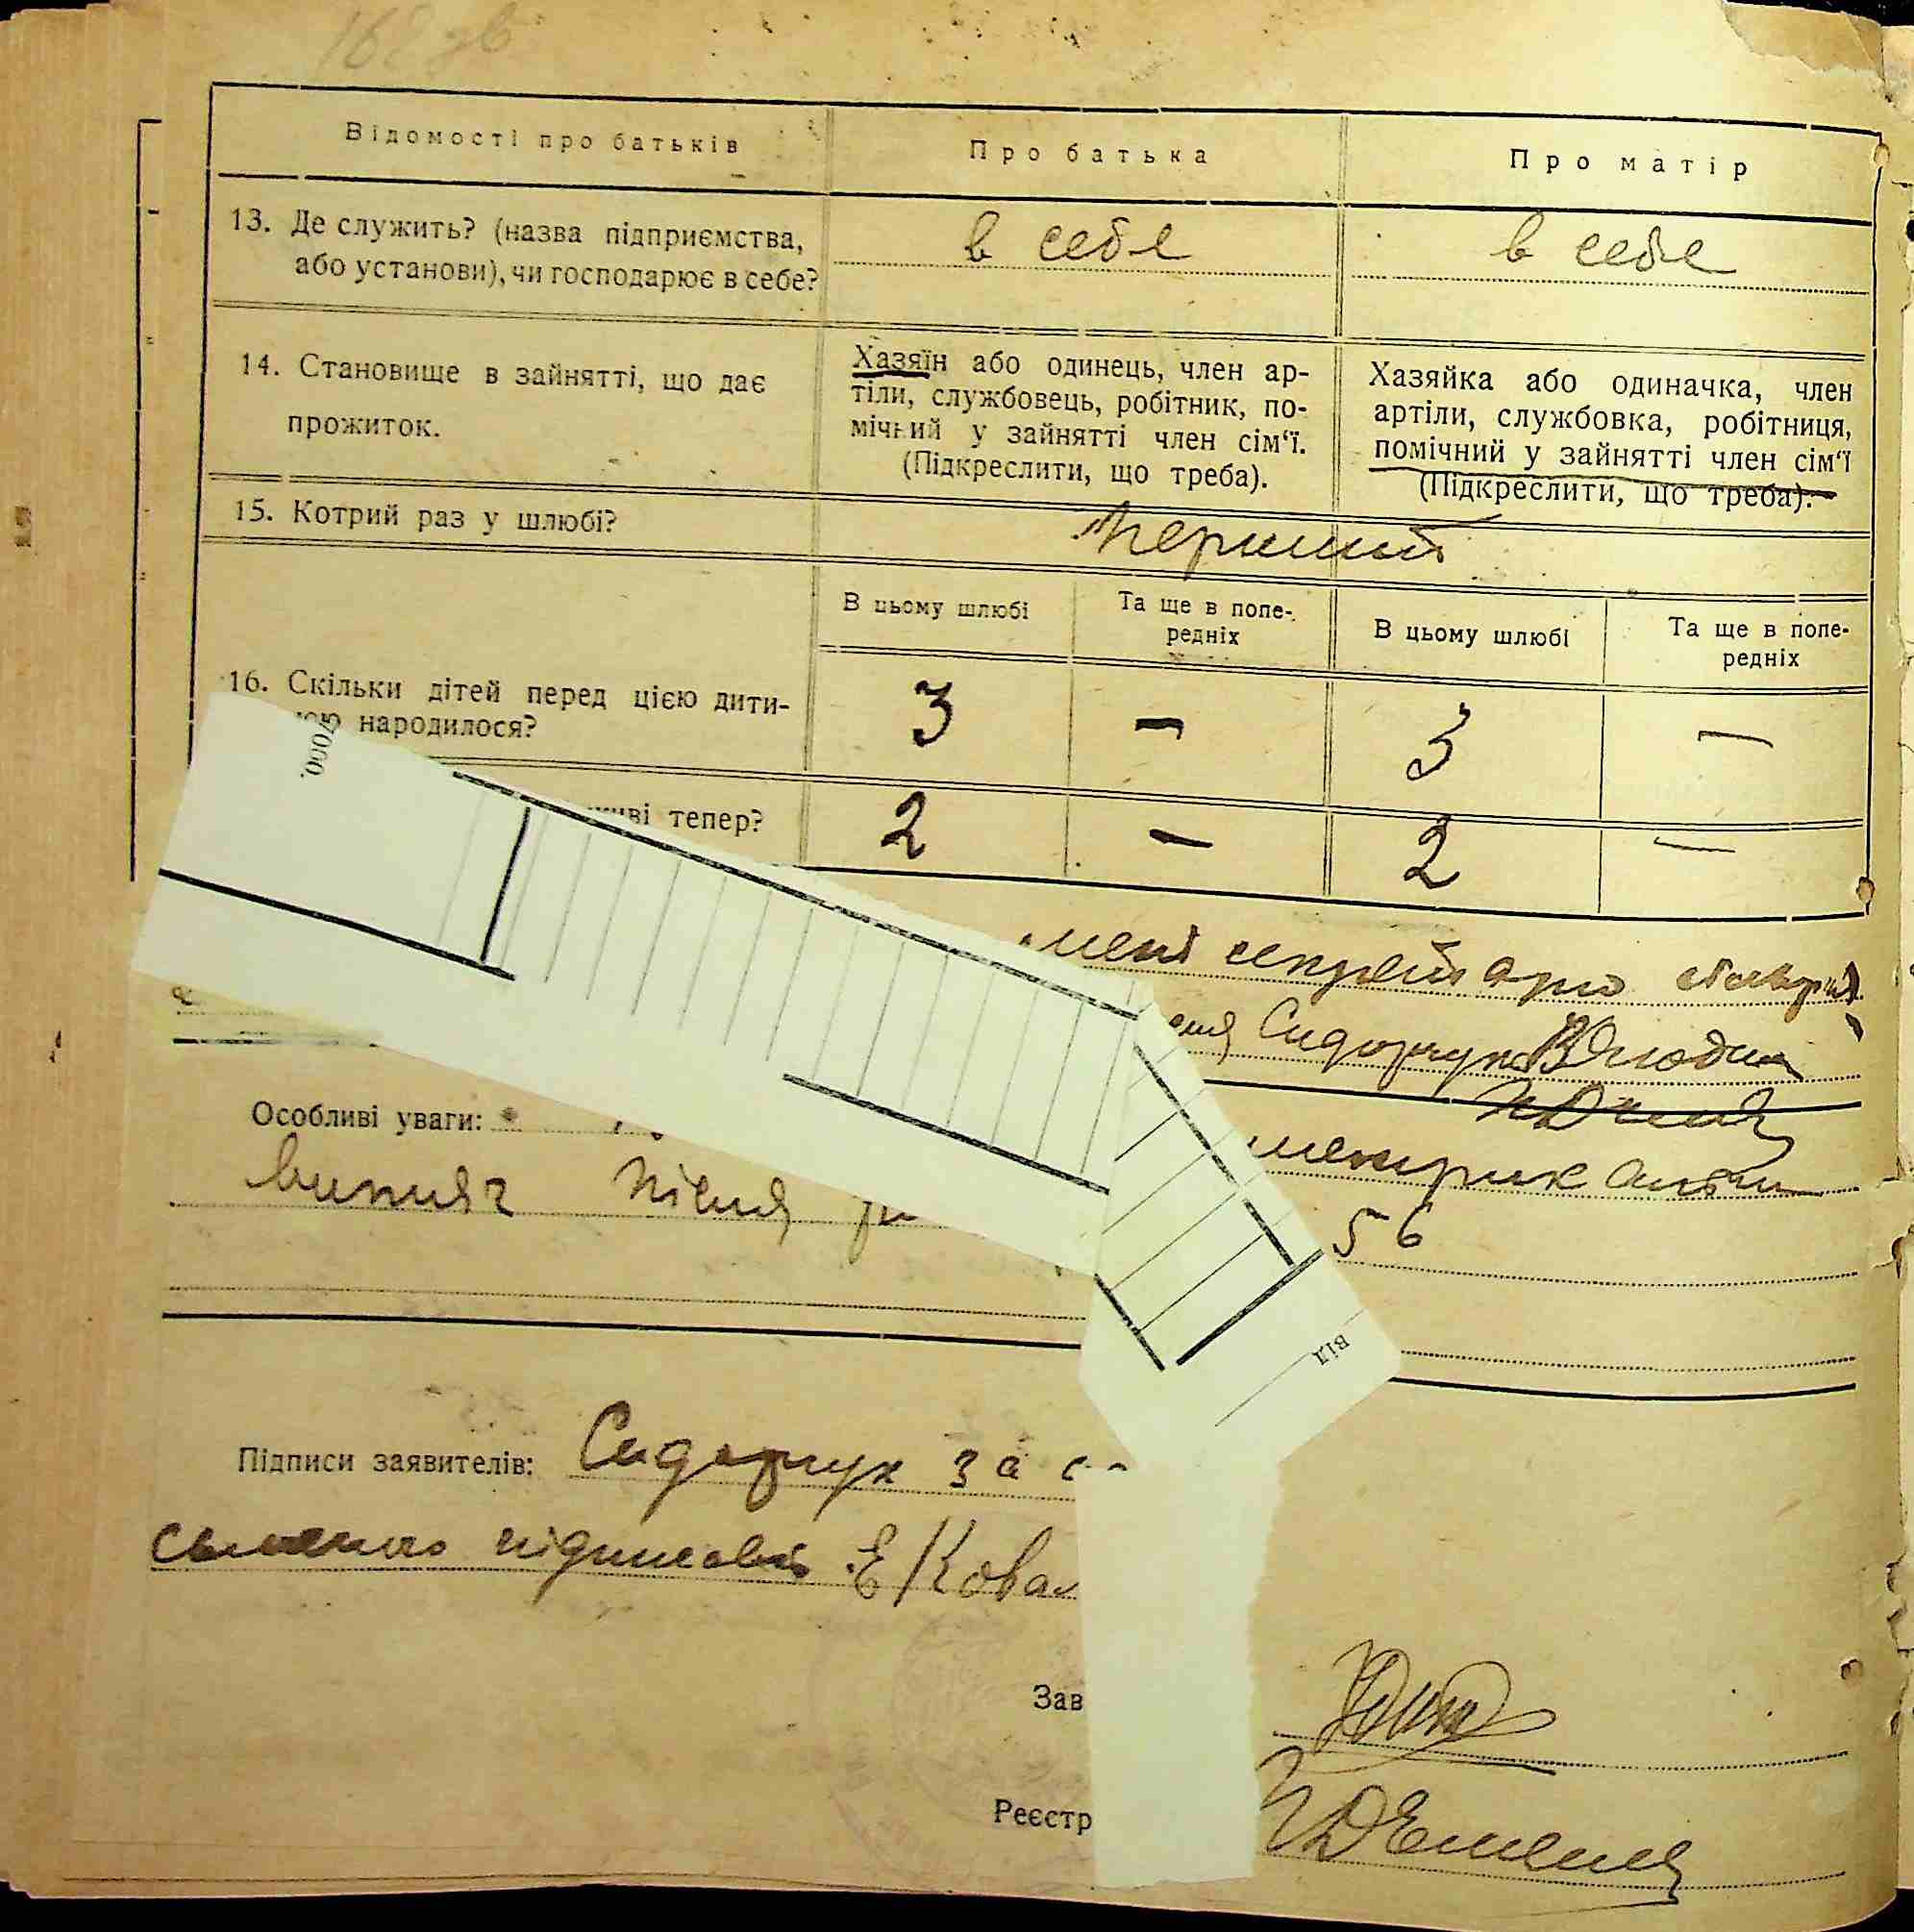 162 зв
Відомості про батьків
Про батька
Про матір
13. Де служить? (назва підприємства,
або установи), чи господарює в себе?
в себе
в себе
14. Становище в зайнятті, що дає
прожиток.
Хазяїн або одинець, член ар-
тіли, службовець, робітник, по-
мічний у зайнятті член сім‘ї.
(Підкреслити, що треба).
Хазяйка або одиначка, член
артіли, службовка, робітниця,
помічний у зайнятті член сім‘ї
(Підкреслити, що треба).
15. Котрий раз у шлюбі?
Перший
В цьому шлюбі
Та ще в попе-
редніх
В цьому шлюбі
Та ще в попе-
редніх
16. Скільки дітей перед цією дити-
ною народилося?
3
–
3
–
живі тепер?
2
–
2
–
7000.
мені секретарю
Сидорчук
Особливі уваги:
метрик
випис після
56
від
Підписи заявителів: Сидорчук за
підписав Е Ковал
Зав
Реєстр